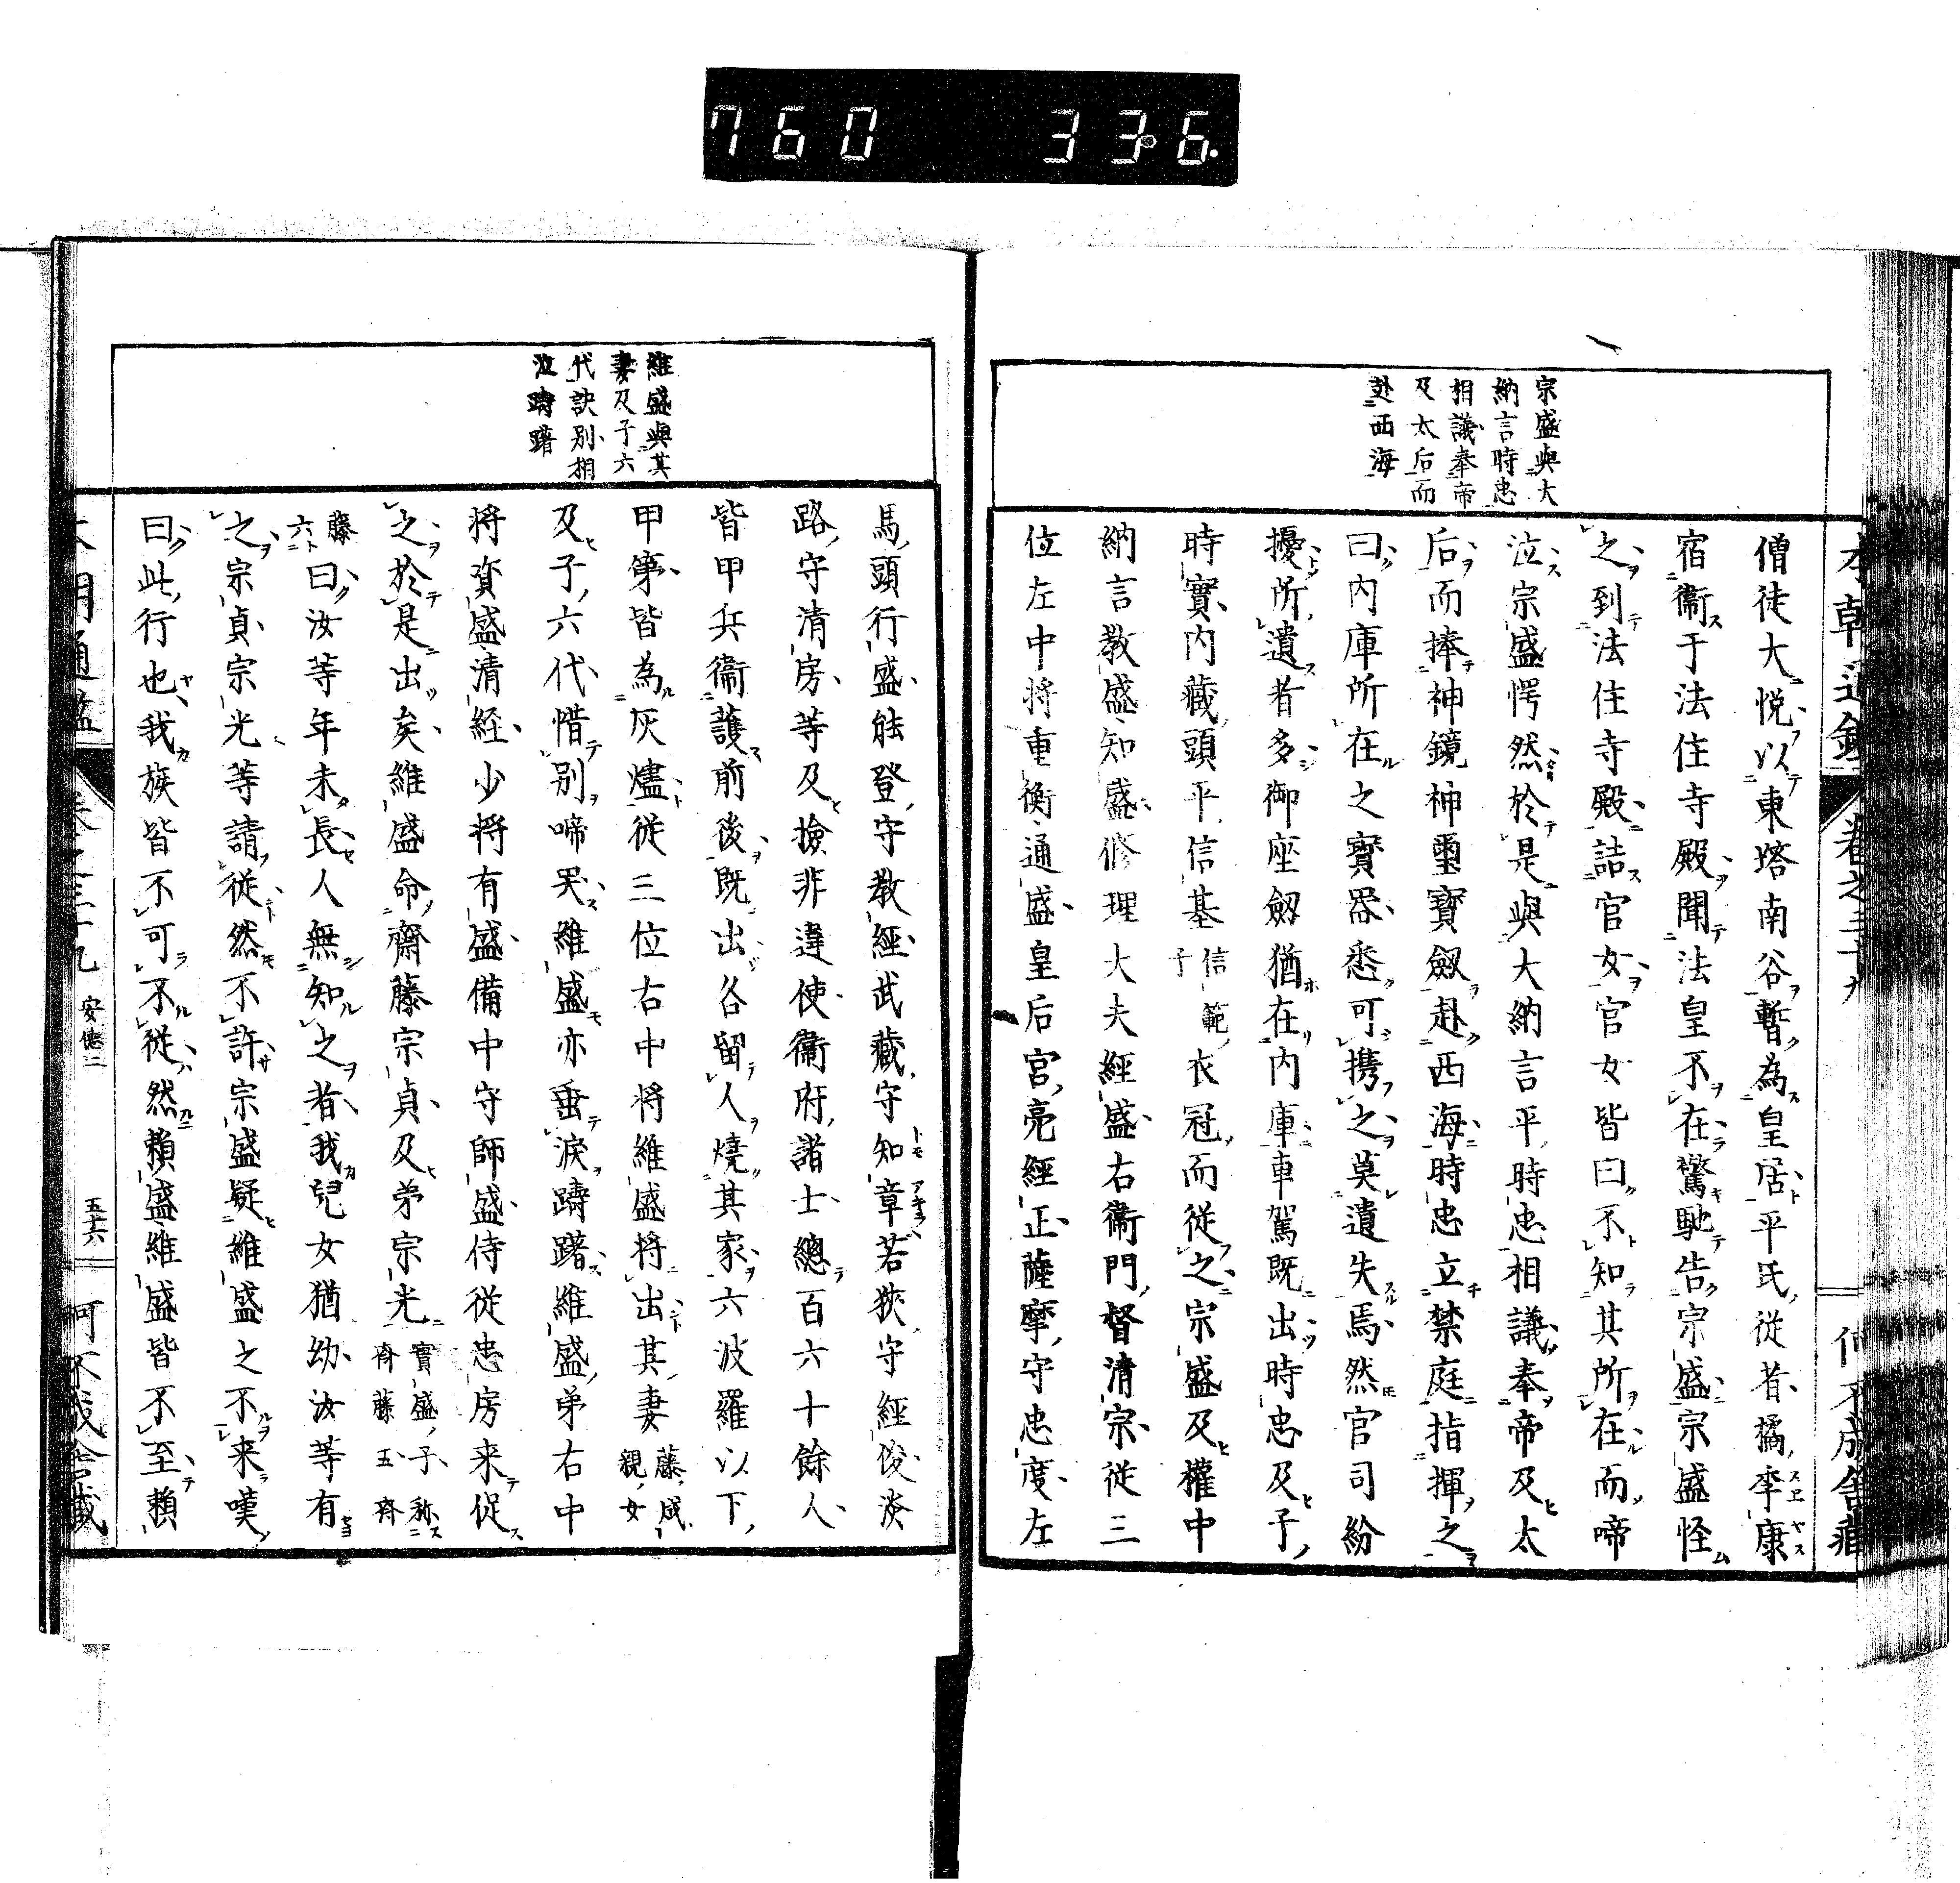 760 336
宗盛與大
納言時忠
相議奉帝
及太后而
赴西海
僧徒大悦以東塔南谷暫為皇居平氏從者橘季康
宿衞于法住寺殿聞法皇不在驚馳告宗盛宗盛怪
之到法住寺殿詰官女官女皆曰不知其所在而啼
泣宗盛愕然於是與大納言平時忠相議奉帝及太
后而捧神鏡神璽寶劔赴西海時忠立禁庭指揮之
曰内庫所在之寶器悉可携之莫遺失焉然官司紛
擾所遺者多御座劔猶在内庫車駕既出時忠及子
時實内藏頭平信基信範子衣冠而從之宗盛及權中
納言教盛知盛修理大夫經盛右衞門督清宗從三
位左中将重衡通盛皇后宮亮經正薩摩守忠度左
維盛與其
妻及子六
代訣別相
泣躊躇
馬頭行盛能登守教經武藏守知章若狹守經俊淡
路守清房等及撿非違使衞府諸士總百六十餘人
皆甲兵衞護前後既出各留人燒其家六波羅以下
甲第皆為灰燼從三位右中将維盛将出其妻藤成親女
及子六代惜別啼哭維盛亦垂淚躊躇維盛弟右中
将資盛清經少将有盛備中守師盛侍從忠房来促
之於是出矣維盛命齋藤宗貞及弟宗光實盛子称齊藤五齊
藤六曰汝等年未長人無知之者我兒女猶幼汝等有
之宗貞宗光等請從然不許宗盛疑維盛之不来嘆
曰此行也我族皆不可不從然賴盛維盛皆不至賴
安德二
五十六